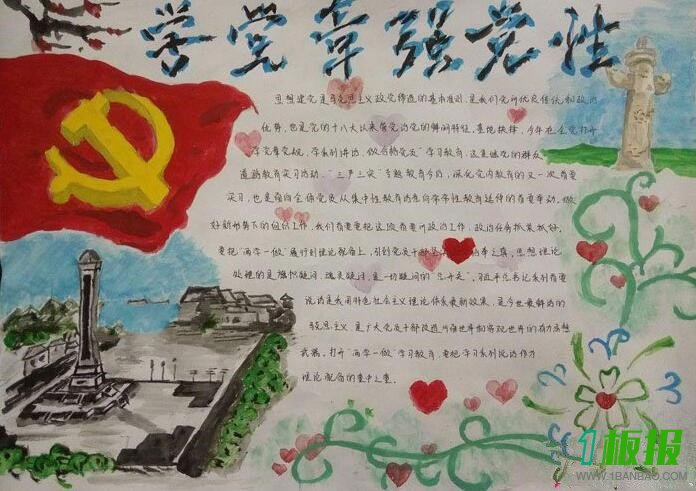 学党章强党性
思想建党是马克思主义政党缔造的基本准则,是我们党的优良传统和政治
优势,也是党的十八大以来管党治党的鲜明特征、基抱抉择。今年在全党打开
学党章党规、学系列讲话、做合格党员"学习教育,这是继党的群众
道路教育实习活动、"三严三实"专题教育今后,深化党内教育的又一次首要
实习,也是面向全体党员从集中性教育活动向常常性教育延伸的首要举动。做
好新形势下的组织工作,我们首要把这项首要政治工作、政治任务抓紧抓好。
要把"两学一做"履行到理论配备上,引到党员干部
处理的是旗帜疑问、魂灵疑问,是一切疑问的"总开关"。习近平总书记系列首要
说话是我国特色社会主义理论体系最新效果,是今世最鲜活的
马克思主义,是广大党员干部改造片面世界和客观世界的有力思想
武器。打开"两学一做"学习教育,要把学习系列说话作为
理论配备的重中之重。
1板报
WWW.1BANBAO.COM